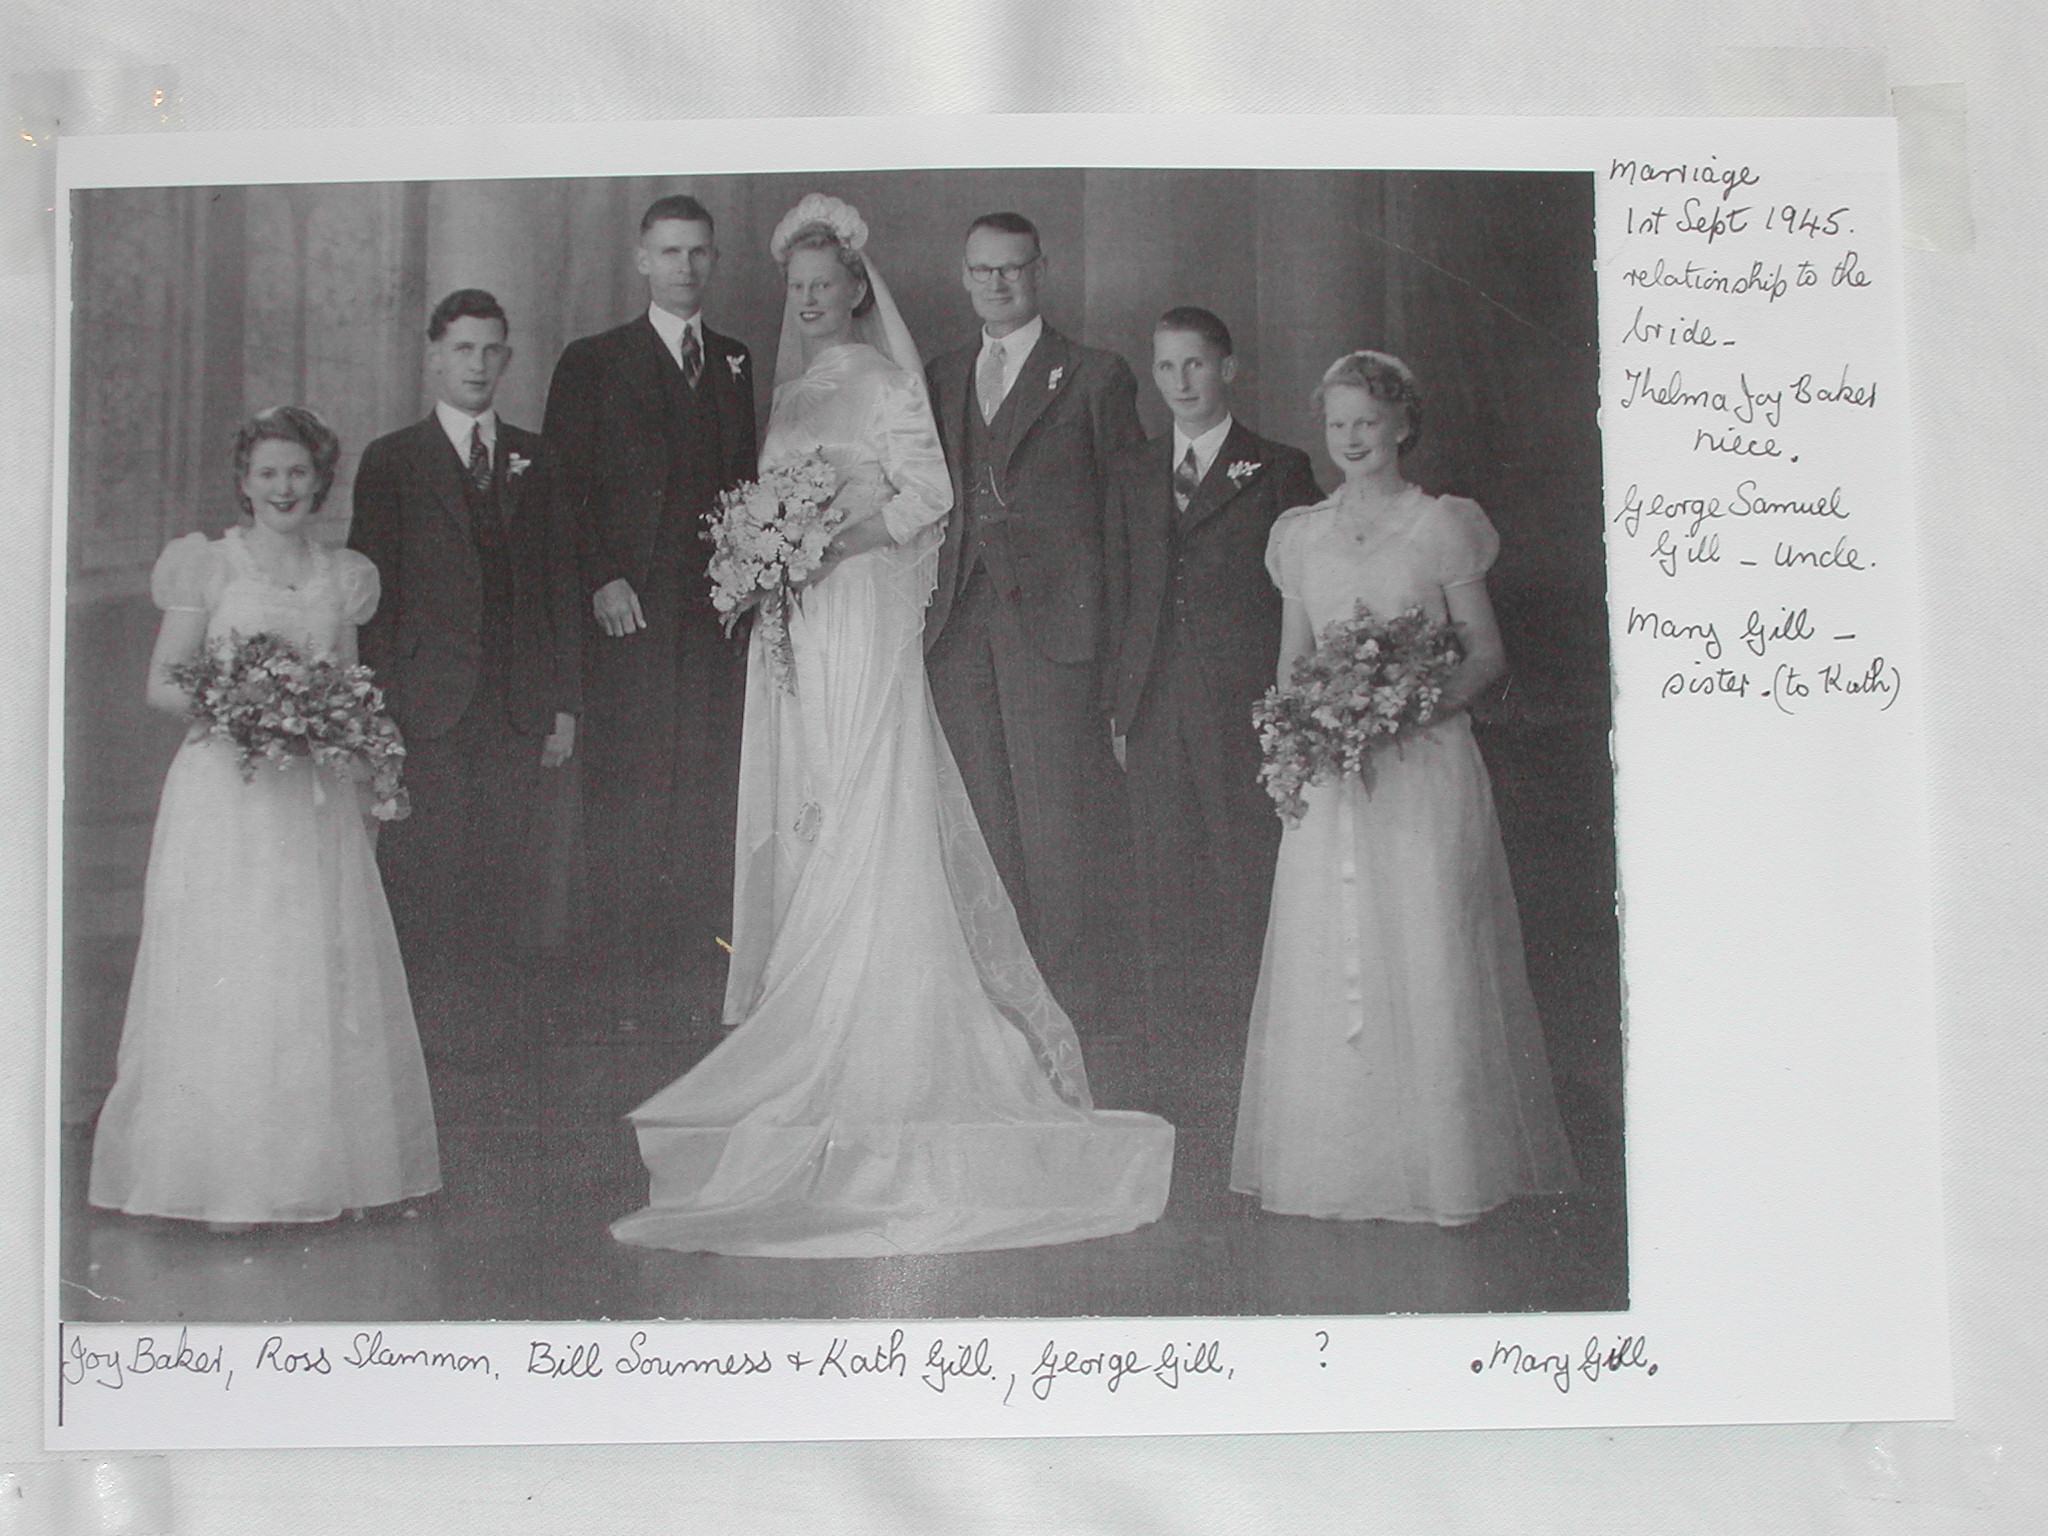 Marriage
1st Sept 1945.
relationship to the
bride -
Thelma Joy Baker
niece.
George Samuel
Gill - Uncle.
Mary Gill -
sister. (to Kath)
Joy Baker, Ross Slammon, Bill Sounness + Kath Gill., George Gill, ? .Mary Gill.